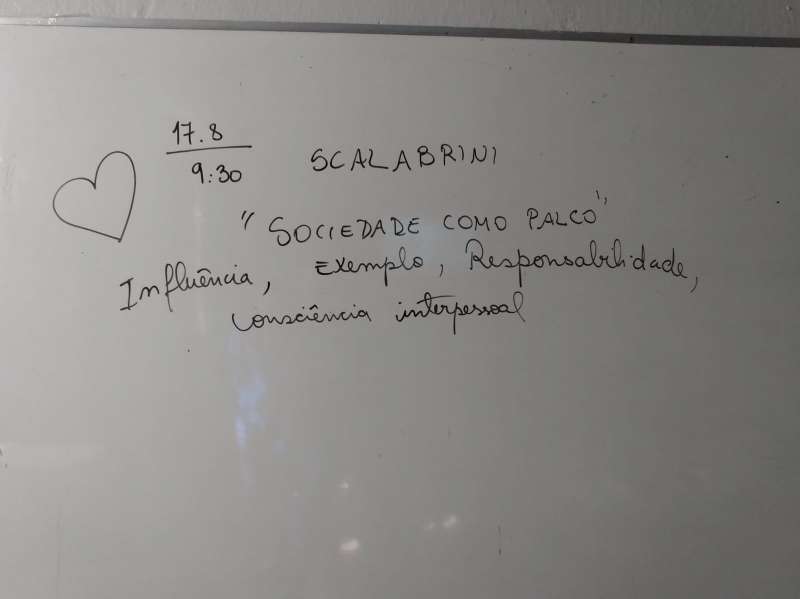 17.8
9:30 SCALABRINI
"SOCIEDADE COMO PALCO"
Influência, Exemplo, Responsabilidade,
consciência interpessoal